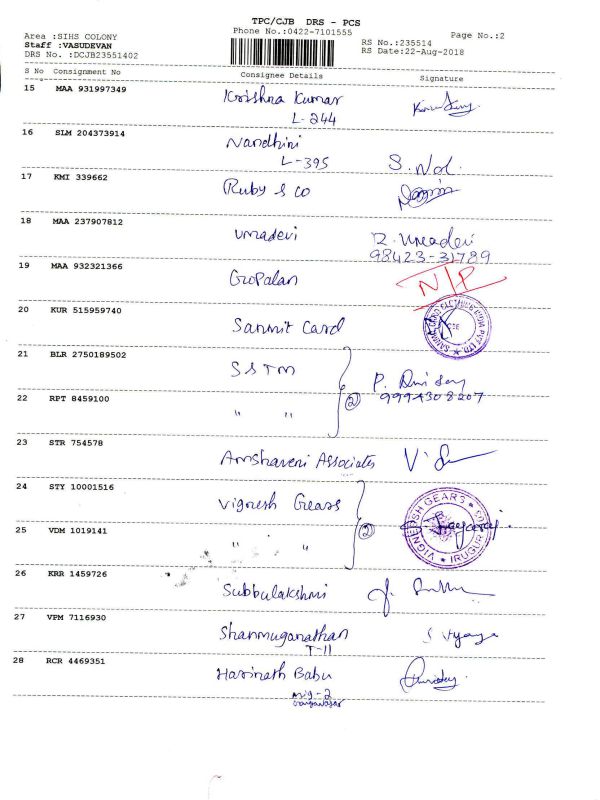 TPC/CJB DRS - PCS
Area :SIHS COLONY
Phone No.:0422-7101555
Page No.:2
Staff :VASUDEVAN
RS No.:235514
DRS No. :DCJB23551402
RS Date:22-Aug-2018
S No Consignment No Consignee Details Signature
15 MAA 931997349 Krishna Kumar
L-244
16 SLM 204373914 Nandhini
L-395 S. Nol.
17 KMI 339662 Ruby & co
18 MAA 237907812 Umadevi R. Umadevi
98423-31789
19 MAA 932321366 Gopalan N/P
20 KUR 515959740 Sanmit Card
21 BLR 2750189502 SSTM
(2) 9994308207
22 RPT 8459100 " "
23 STR 754578 Amshaveni Associates
24 STY 10001516 Vignesh Gears
VIGNESH GEARS
IRUGUR
25 VDM 1019141 " " (2)
26 KRR 1459726 Subbulakshmi
27 VPM 7116930 Shanmuganathan S Vijaya
T-11
28 RCR 4469351 Harinath Babu